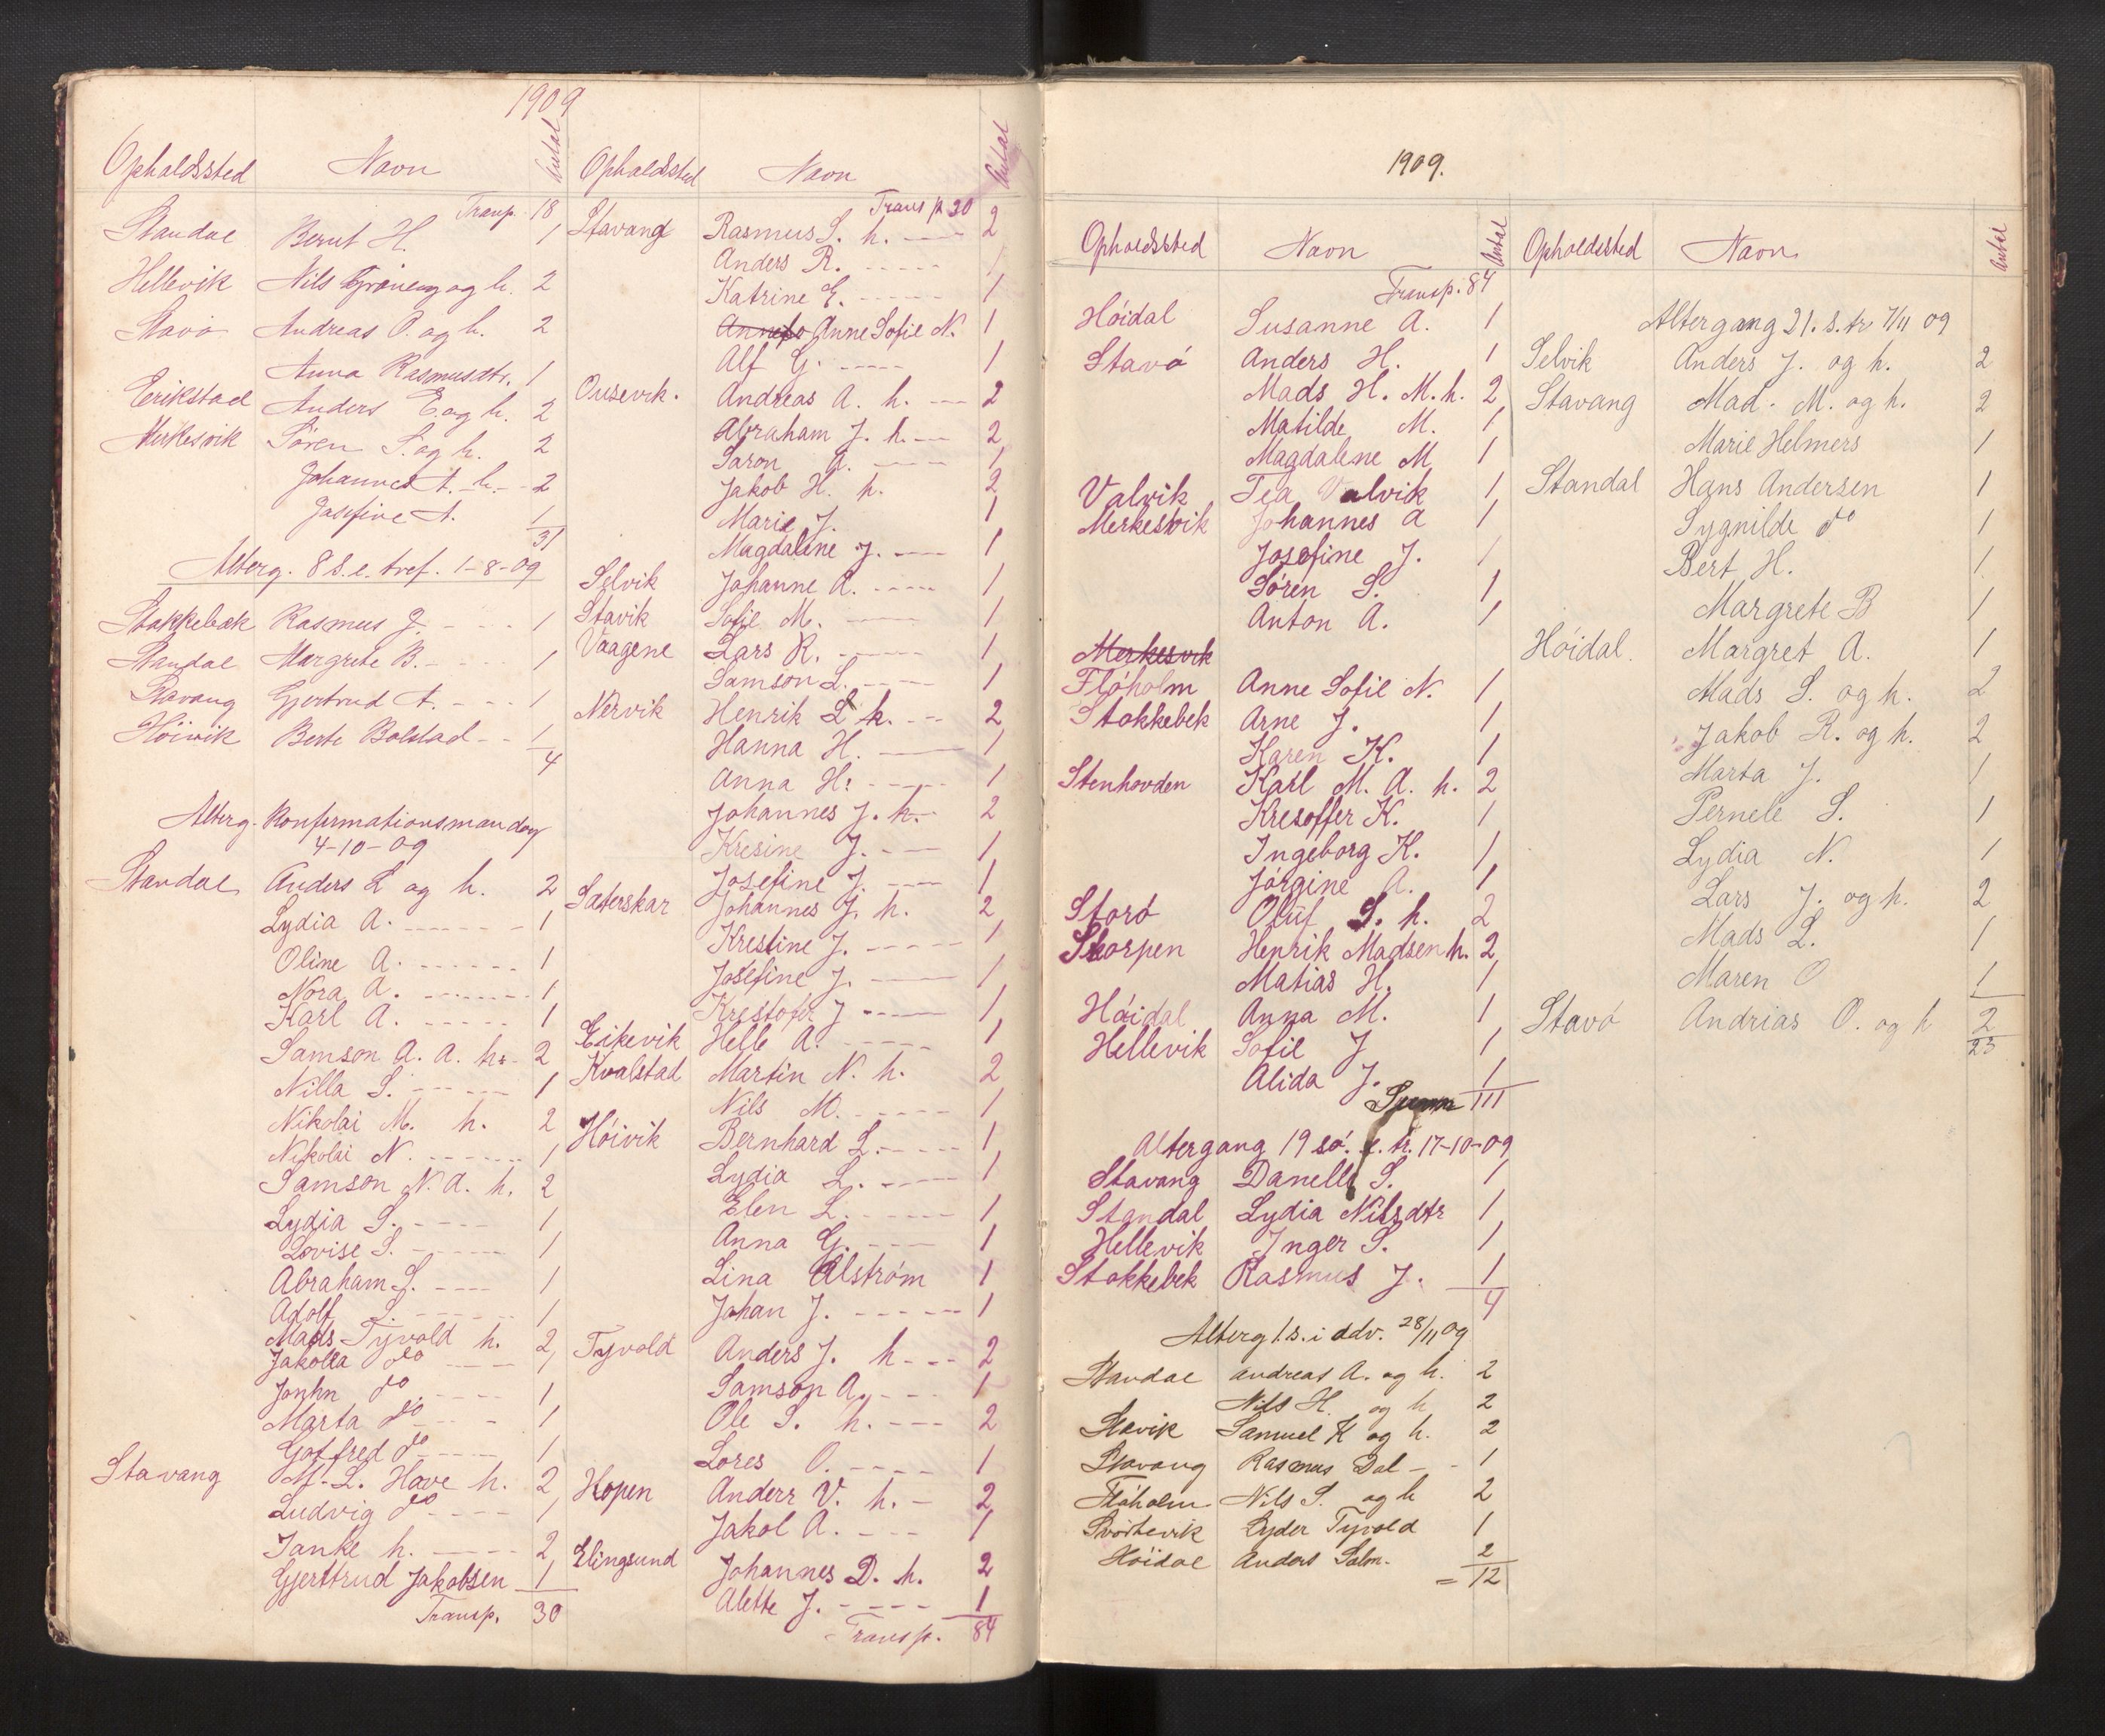 1909
Opholdssted Navn Antal
Transp. 18
Standal Bernt H. 1
Hellevik Nils Grimeng og h. 2
Stavø Andreas O. og h. 2
Anna Rasmusdtr. 1
Erikstad Anders E. og h. 2
Merkesvik Søren S. og h. 2
Johannes A. h. - 2
Josefine A. 1
31
Alterg. 8 S. e. tref. 1-8-09
Stokkebæk Rasmus J. - - - 1
Standal Margrete B. - - 1
Stavang Gjertrud A. - - - 1
Høivik Berte Bolstad - - 1
4
Alterg. Konfirmationsmandag
4-10-09
Standal Anders L og h. 2
Lydia A. - - - - - - 1
Oline A. - - - - - - 1
Nora A. - - - - - - 1
Karl A. - - - - - 1
Samson A. A. h. - 2
Nilla S. - - - - 1
Nikolai M. h. 2
Nikolai N. - - - - - - 1
Samson N. A. h. 2
Lydia S. - - - - 1
Lovise S. - - - - - 1
Abraham S. - - - - 1
Adolf S. - - - - - 1
Mads Tyvold h. 2
Jakolla do - - - - 1
Jonhn do - - - - 1
Marta do - - - 1
Gotfred do - - - - 1
Stavang M. L. Have h. 2
Ludvig do - - - - 1
Janke h. - - - - - 2
Gjerttrud Jakobsen 1
Transp. 30
Opholdssted Navn Antal
Transp 30
Stavang Rasmus S. h. - - - 2
Anders R. - - - - - 1
Katrine E. - - - - - 1
Anne Sofie N. 1
Alf G. - - - - 1
Ousevik. Andreas A. h. - - 2
Abraham J. h. - - 2
Saron A. - - - - 1
Jakob H. h. 2
Marie J. 1
Magdalene J. - - - 1
Selvik Johanne A. - - - - 1
Stavik Sofie M. - - - - 1
Vaagene Lars R. - - - - - 1
Samson L. - - - - 1
Nervik Henrik L h. - - - 2
Hanna H. - - - - 1
Anna H. - - - - - 1
Johannes J. h. - 2
Kresine J. - - - 1
Josefine J. - - - 1
Sæterskar Johannes J. h. 2
Krestine J. - - - - - 1
Josefine J. - - - - 1
Krestofer J - - - - 1
Eikevik Helle A. - - - - - 1
Kvalstad Martin N. h. 2
Nils M. - - - - - 1
Høivik Bernhard L. - - - - - 1
Lydia L. - - - - - 1
Elen L. - - - - - 1
Anna G. - - - - 1
Lina Alstrøm 1
Johan J. - - - - - - 1
Tyvold Anders J. h - - - 2
Samson A. - - - - 1
Ole S. h. - - - 2
Lores O. - - - - 1
Hopen Anders V. h. - 2
Jakol A. - - - 1
Elingsund Johannes D. h. 2
Alette J. - - - - 1
Transp. 84
1909.
Opholdssted Navn Antal
Transp. 84
Høidal Susanne A. 1
Stavø Anders H. 1
Mads H. M. h. 2
Matilde M. 1
Magdalene M 1
Valvik Tea Valvik 1
Merkesvik Johannes A 1
Josefine J. 1
Søren S. 1
Anton A. 1
Merkesvik
Fløholm Anne Sofie N. 1
Stokkebek Arne J. 1
Karen K. 1
Stenhovden Karl M. A. h. 2
Kresoffer K. 1
Ingeborg K. 1
Jørgine A. 1
Storø Oluf S. h. 2
Skorpen Henrik Madsen h. 2
Matias H. 1
Høidal Anna M. 1
Hellevik Sofie J 1
Alida J. 1
Summa 111
Altergang 19 sø. e. tr. 17-10-09
Stavang Danell S. 1
Standal Lydia Nilsdtr 1
Hellevik Inger S. 1
Stokkebek Rasmus J. 1
4
Alterg 1 s. i adv. 28/11 09
Standal Andreas A. og h. 2
Nils H. og h 2
Stavik Samuel K og h. 2
Stavang Rasmus Dal - - 1
Fløholm Nils S. og h 2
Svortevik Lyder Tyvold 1
Høidal Anders Salm. 2
= 12
Opholdssted Navn Antal
Altergang 21. s. tr 7/11 09
Selvik Anders J. og h. 2
Stavang Mad. M. og h. 2
Marie Helmers 1
Standal Hans Andersen 1
Sygnilde do 1
Bert H. 1
Margrete B 1
Høidal. Margret A. 1
Mads S. og h. 2
Jakob R. og h. 2
Marta J. 1
Pernele S. 1
Lydia N. 1
Lars J. og h. 2
Mads L. 1
Maren O 1
Stavø Andrias O. og h 2
23